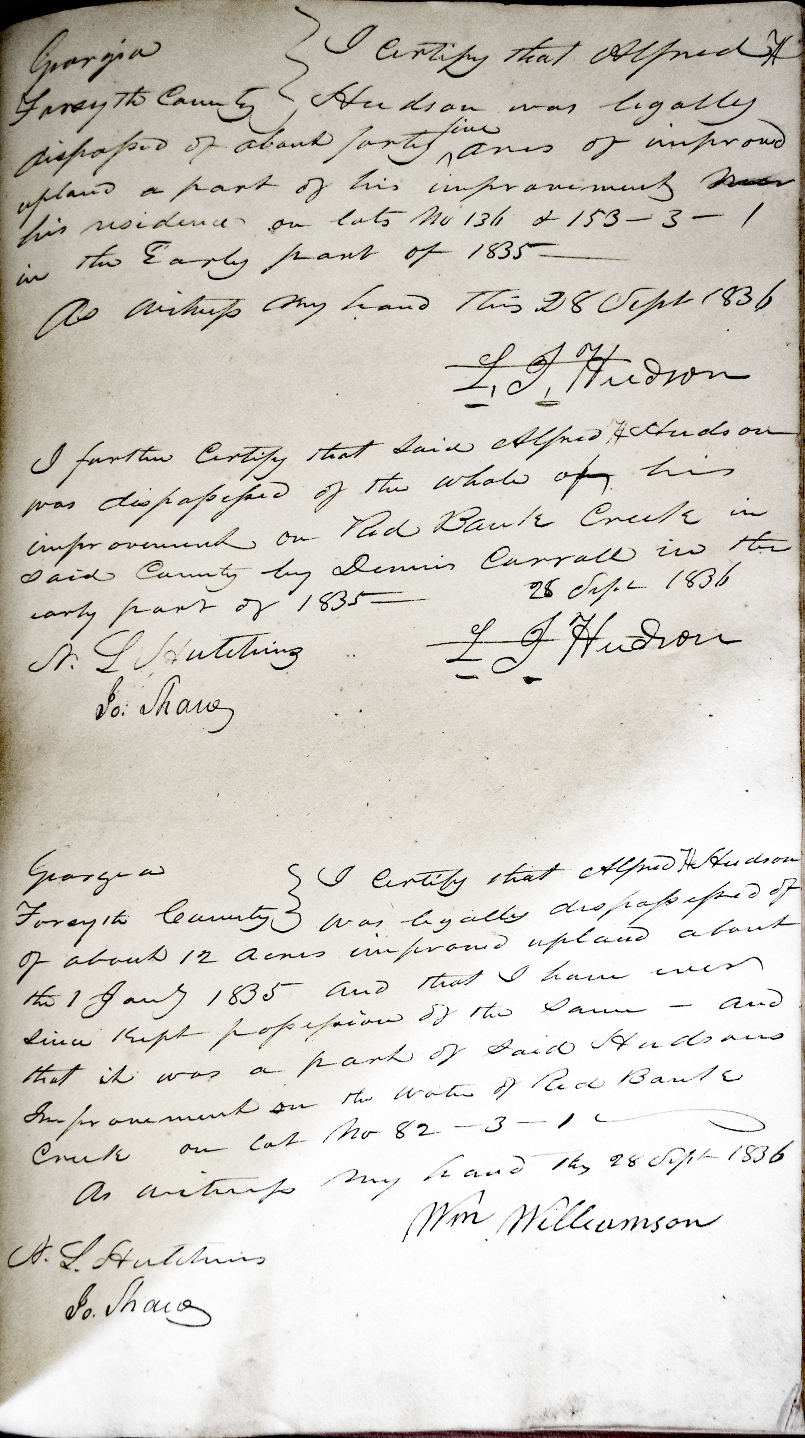 Georgia } I Certify that Alfred H
Forsyth County } Hudson was legally
dispossed of about forty five acres of improved
upland a part of his improvement near
his residence on lots No 136 & 153 – 3 – 1
in the Early part of 1835
As witness my hand this 28 Sept 1836
L, J, Hudson
I further Certify that said Alfred H Hudson
was dispossessed of the whole of his
improvement on Red Bank Creek in
said County by Dennis Carroll in the
early part of 1835 28 Sept 1836
N. L Hutchins L J Hudson
Jo. Shaw
Georgia } I Certify that Alfred H Hudson
Forsyth County } was legally dispossessed of
of about 12 Acres improved upland about
the 1 Jany 1835 and that I have ever
since kept possession of the same – and
that it was a part of said Hudsons
Improvement on the water of Red Bank
Creek on lot No 82 – 3 – 1
As witness my hand this 28 Sept 1836
Wm Williamson
N. L. Hutchins
Jo. Shaw